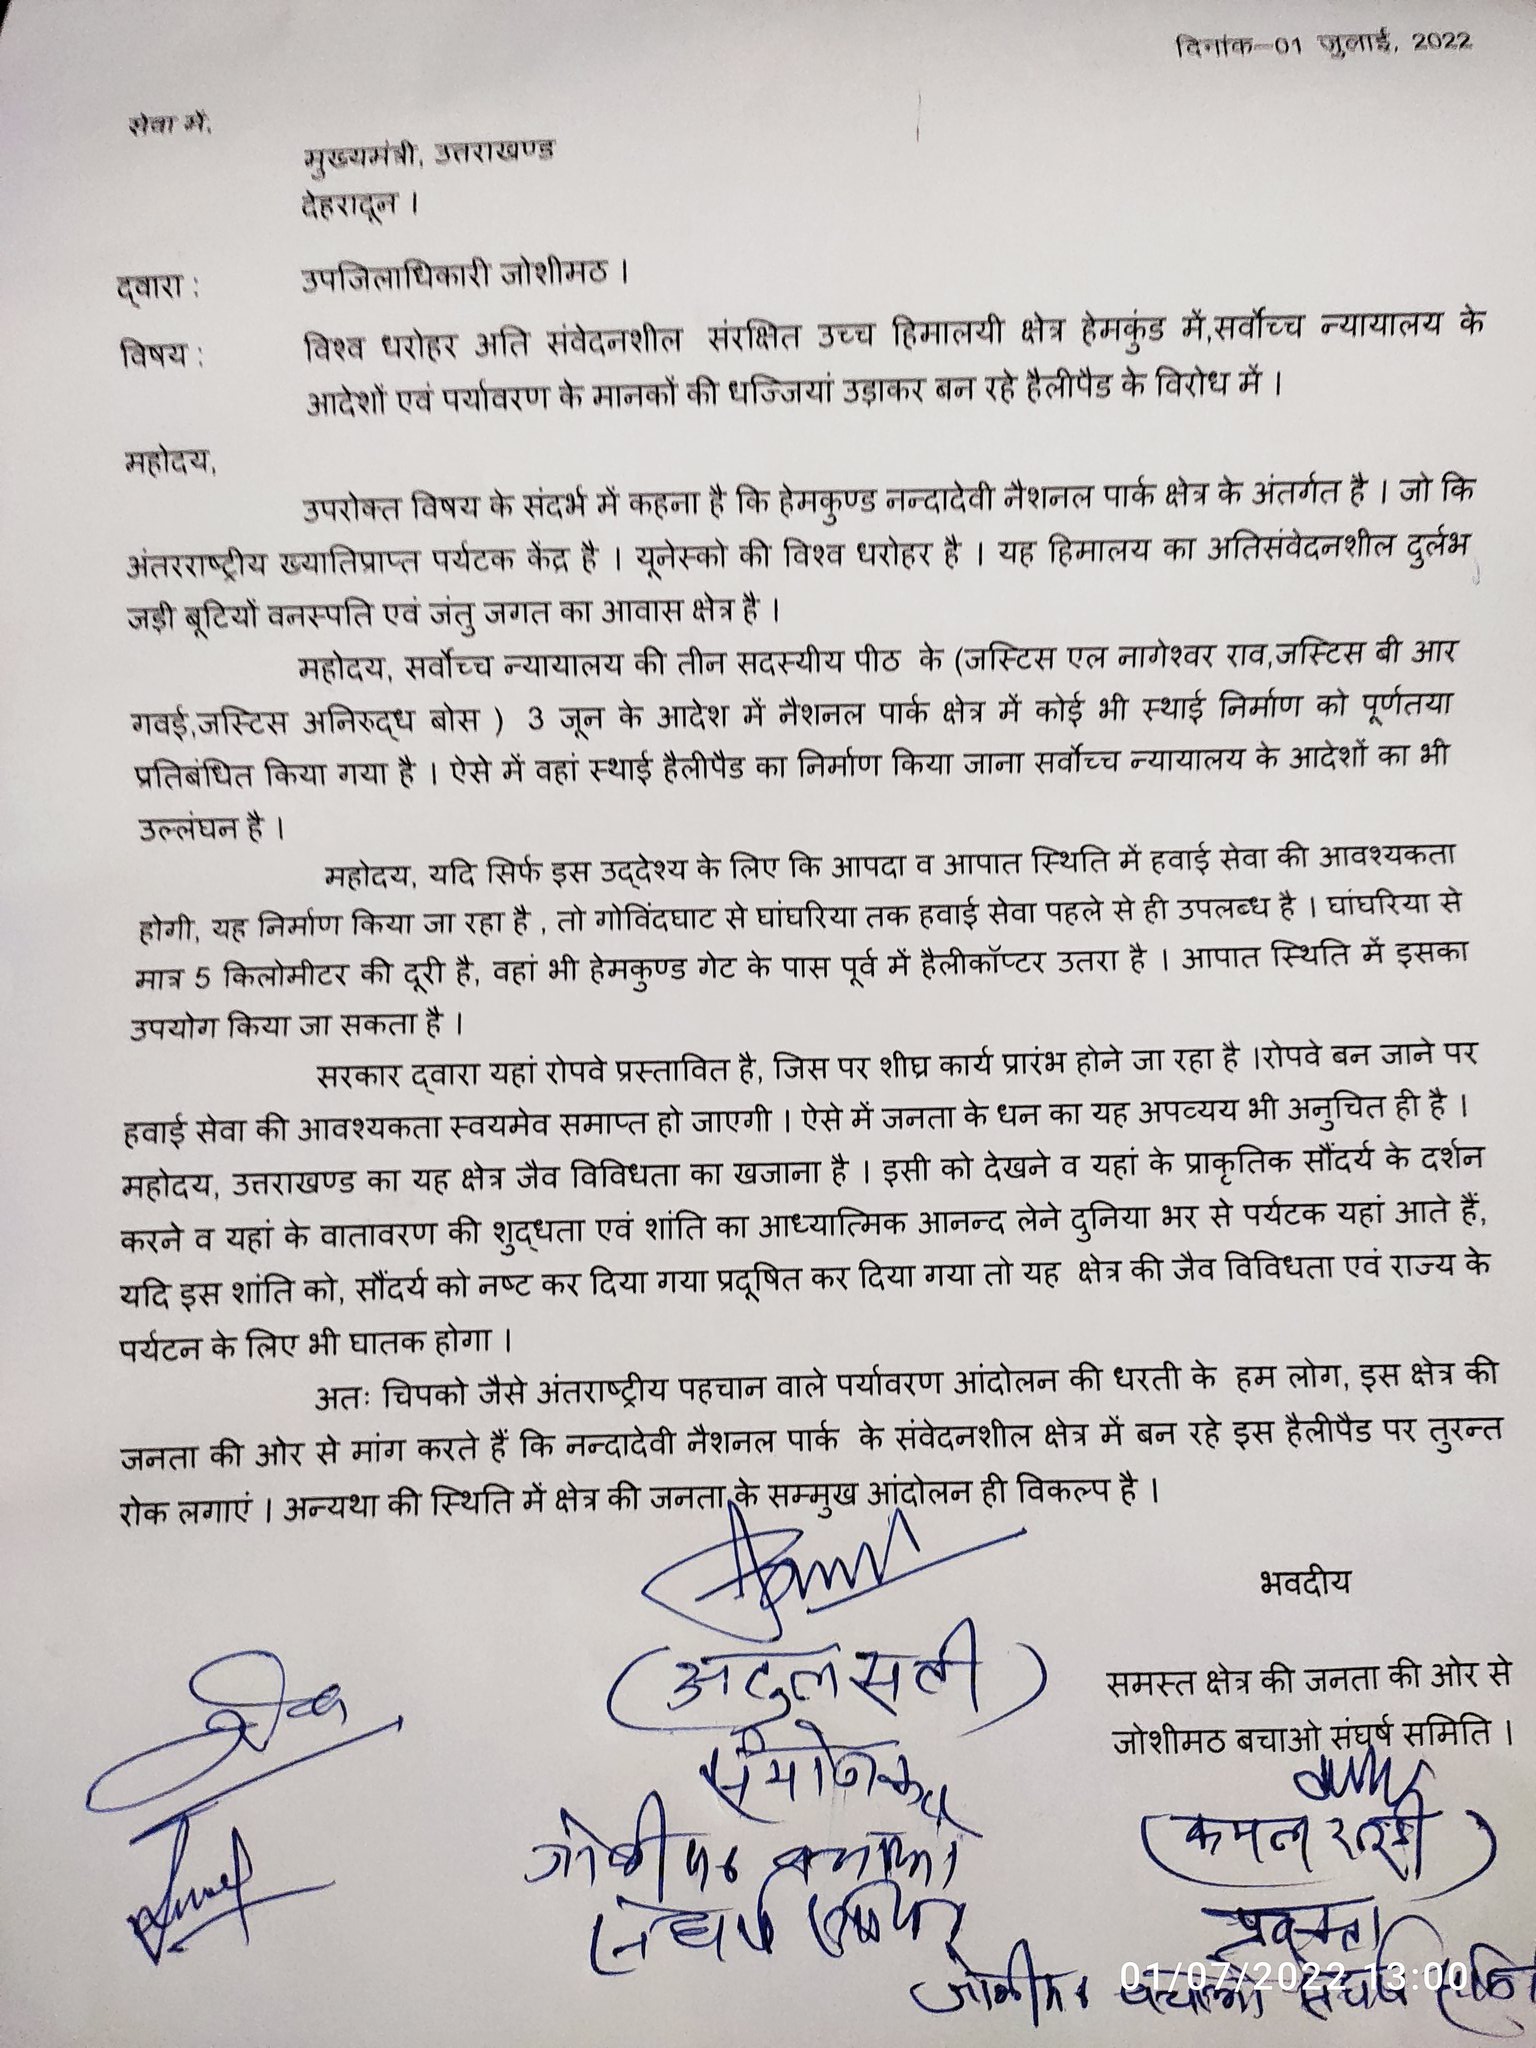 दिनांक-01 जुलाई, 2022
सेवा में,
मुख्यमंत्री, उत्तराखण्ड
देहरादून ।
द्वारा : उपजिलाधिकारी जोशीमठ ।
विषय : विश्व धरोहर अति संवेदनशील संरक्षित उच्च हिमालयी क्षेत्र हेमकुंड में,सर्वोच्च न्यायालय के
आदेशों एवं पर्यावरण के मानकों की धज्जियां उड़ाकर बन रहे हैलीपैड के विरोध में ।
महोदय,
उपरोक्त विषय के संदर्भ में कहना है कि हेमकुण्ड नन्दादेवी नैशनल पार्क क्षेत्र के अंतर्गत है । जो कि
अंतरराष्ट्रीय ख्यातिप्राप्त पर्यटक केंद्र है । यूनेस्को की विश्व धरोहर है । यह हिमालय का अतिसंवेदनशील दुर्लभ
जड़ी बूटियों वनस्पति एवं जंतु जगत का आवास क्षेत्र है ।
महोदय, सर्वोच्च न्यायालय की तीन सदस्यीय पीठ के (जस्टिस एल नागेश्वर राव,जस्टिस बी आर
गवई,जस्टिस अनिरुद्ध बोस ) 3 जून के आदेश में नैशनल पार्क क्षेत्र में कोई भी स्थाई निर्माण को पूर्णतया
प्रतिबंधित किया गया है । ऐसे में वहां स्थाई हैलीपैड का निर्माण किया जाना सर्वोच्च न्यायालय के आदेशों का भी
उल्लंघन है ।
महोदय, यदि सिर्फ इस उद्देश्य के लिए कि आपदा व आपात स्थिति में हवाई सेवा की आवश्यकता
होगी, यह निर्माण किया जा रहा है , तो गोविंदघाट से घांघरिया तक हवाई सेवा पहले से ही उपलब्ध है । घांघरिया से
मात्र 5 किलोमीटर की दूरी है, वहां भी हेमकुण्ड गेट के पास पूर्व में हैलीकॉप्टर उतरा है । आपात स्थिति में इसका
उपयोग किया जा सकता है ।
सरकार द्वारा यहां रोपवे प्रस्तावित है, जिस पर शीघ्र कार्य प्रारंभ होने जा रहा है ।रोपवे बन जाने पर
हवाई सेवा की आवश्यकता स्वयमेव समाप्त हो जाएगी । ऐसे में जनता के धन का यह अपव्यय भी अनुचित ही है ।
महोदय, उत्तराखण्ड का यह क्षेत्र जैव विविधता का खजाना है । इसी को देखने व यहां के प्राकृतिक सौंदर्य के दर्शन
करने व यहां के वातावरण की शुद्धता एवं शांति का आध्यात्मिक आनन्द लेने दुनिया भर से पर्यटक यहां आते हैं,
यदि इस शांति को, सौंदर्य को नष्ट कर दिया गया प्रदूषित कर दिया गया तो यह क्षेत्र की जैव विविधता एवं राज्य के
पर्यटन के लिए भी घातक होगा ।
अतः चिपको जैसे अंतराष्ट्रीय पहचान वाले पर्यावरण आंदोलन की धरती के हम लोग, इस क्षेत्र की
जनता की ओर से मांग करते हैं कि नन्दादेवी नैशनल पार्क के संवेदनशील क्षेत्र में बन रहे इस हैलीपैड पर तुरन्त
रोक लगाएं । अन्यथा की स्थिति में क्षेत्र की जनता के सम्मुख आंदोलन ही विकल्प है ।
भवदीय
समस्त क्षेत्र की जनता की ओर से
जोशीमठ बचाओ संघर्ष समिति ।
(अतुल सती)
संयोजक
जोशीमठ बचाओ
संघर्ष समिति
(कमल रतूड़ी)
प्रवक्ता
जोशीमठ बचाओ संघर्ष समिति
01/07/2022 13:00